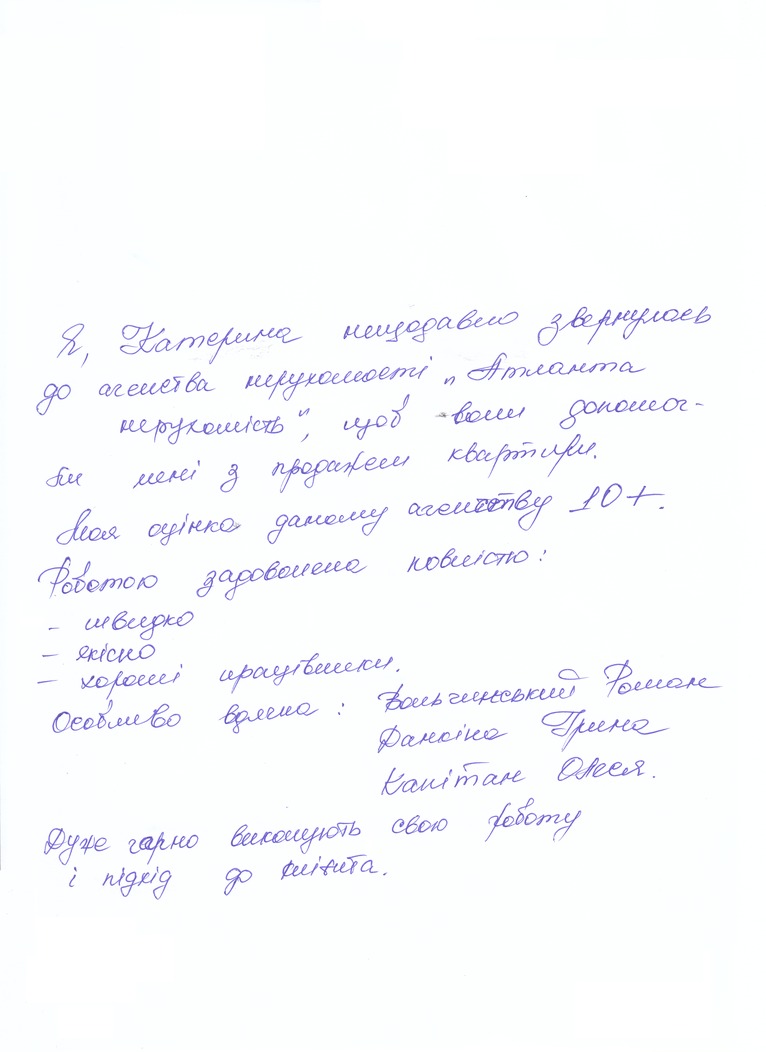 Я, Катерина нещодавно звернулась
до агенства нерухомості „Атланта
нерухомість", щоб вони допомог-
ли мені з продажем квартири.
Моя оцінка даному агентству 10+.
Роботою задоволена повністю:
- швидко
- якісно
- хороші працівники.
Особливо вдячна: Вольчинський Роман
Ірина
Капітан Олеся.
Дуже гарно виконують свою роботу
і підхід до клієнта.